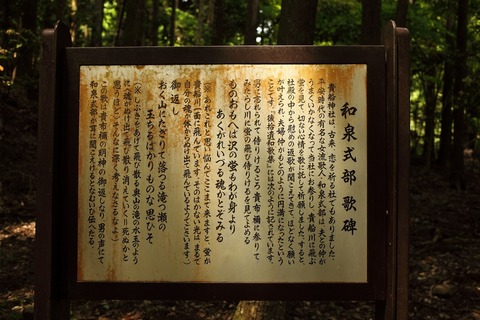 和泉式部歌碑
貴船神社は、古来、恋を祈る社でもありました。
平安時代の有名な女流歌人・和泉式部は、夫との仲が
うまくいかなくなって当社にお参りし、貴船川に飛ぶ
蛍を見て、切ない心情を歌に託して祈願しました。すると、
社殿の中から慰めの返歌が聞こえてきて、ほどなく願い
が叶えられ、夫婦仲がもとのように円満になったという
ことです。『後拾遺和歌集』には次のように記されています。
男に忘れられて侍りけるころ 貴布禰に参りて
みたらし川に蛍の飛び侍りけるを見てよめる
ものおもへば沢の蛍もわが身より
あくがれいづる魂かとぞみる
御返し
おく山にたぎりて落つる滝つ瀬の
玉ちるばかりものな思ひそ
この歌は貴布禰の明神の御返しなり、男の声にて
和泉式部が耳に聞こえけるとなむいひ伝へたる。